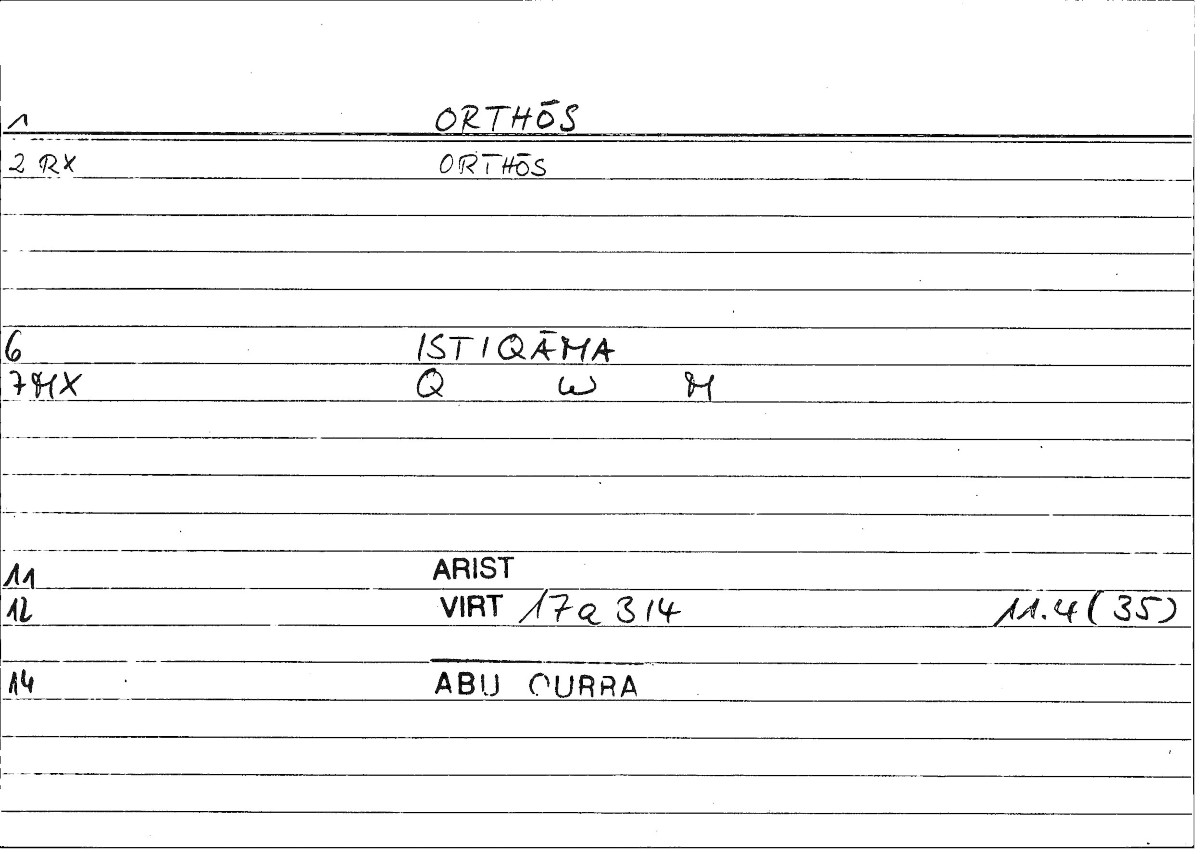 1 ORTHŌS
2 RX ORTHŌS
6 ISTIQĀMA
7 MX Q W M
11 ARIST
12 VIRT 17a3/4 11.4(35)
14 ABU QURRA